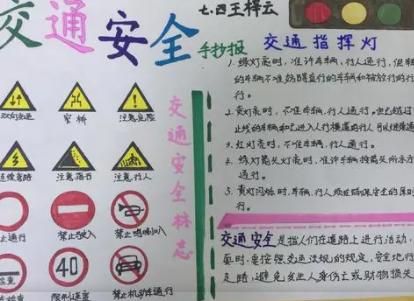 交通安全
手抄报
七.四王梓云
交通指挥灯
1.绿灯亮时,准许车辆,行人通行,但转
的车辆不准妨碍直行的车辆和被放行的行
行。
2.黄灯亮时,不准车辆,行人通行,但已越过
止线的车辆和已进入人行横道的行人可以继续通
3.红灯亮时,不准车辆、行人通行。
4.绿箭头灯亮时,准许车辆按箭头所示方
通行。
5.黄灯闪烁时,车辆、行人须在确保安全的原则
行。
交通安全标志
窄桥
注意危险
连续弯路
注意落石
注意行人
止通行
禁止驶入
禁止鸣喇叭
40
限制速度
禁止机动车通行
交通安全是指人们在道路上进行活动、
面时,要按照交通法规的规定,安全地行
走路,避免发生人身伤亡或财物损失